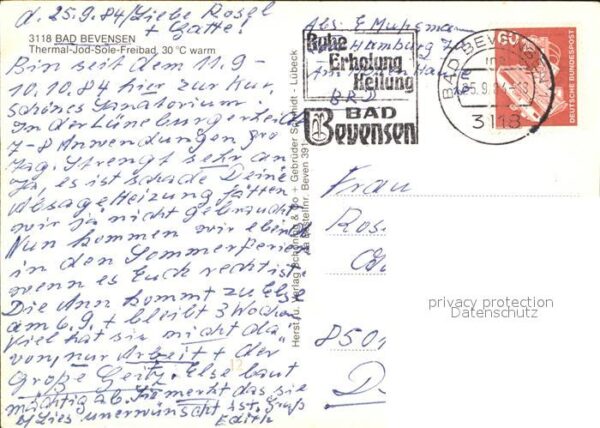 d. 25.9.84/Liebe Rosel
+ Gatte!
3118 BAD BEVENSEN
Thermal-Jod-Sole-Freibad, 30 °C warm
Bin seit dem 11.9-
10.10.84 hier zur Kur,
schönes Sanatorium.
In der Lüneburgerheide
7-8 Anwendungen pro
Tag. Strengt sehr an
Ja, es ist schade Deine
Absage Heizung hätten
wir ja nicht gebraucht
Nun kommen wir eben
in den Sommerferien
wenn es Euch recht ist.
Die Ann kommt zu Else
am 6.9. + bleibt 3 Wochen
viel hat sie nicht da
von, nur Arbeit + der
große Geitz. Else baut
mächtig ab. Sie merkt das sie
Lies unerwünscht ist. Gruß
Edith
Herst. u. Verlag Schöning & Co + Gebrüder Schmidt - Lübeck
Bestellnr. Beven 391
Abs. E. Muhsmann
Hamburg 7
Am
BRD
Ruhe
Erholung
Heilung
BAD
Bevensen
BAD BEVENSEN
25.9.84-18
3118
60
DEUTSCHE BUNDESPOST
Frau
Ros
850
D
privacy protection
Datenschutz
12